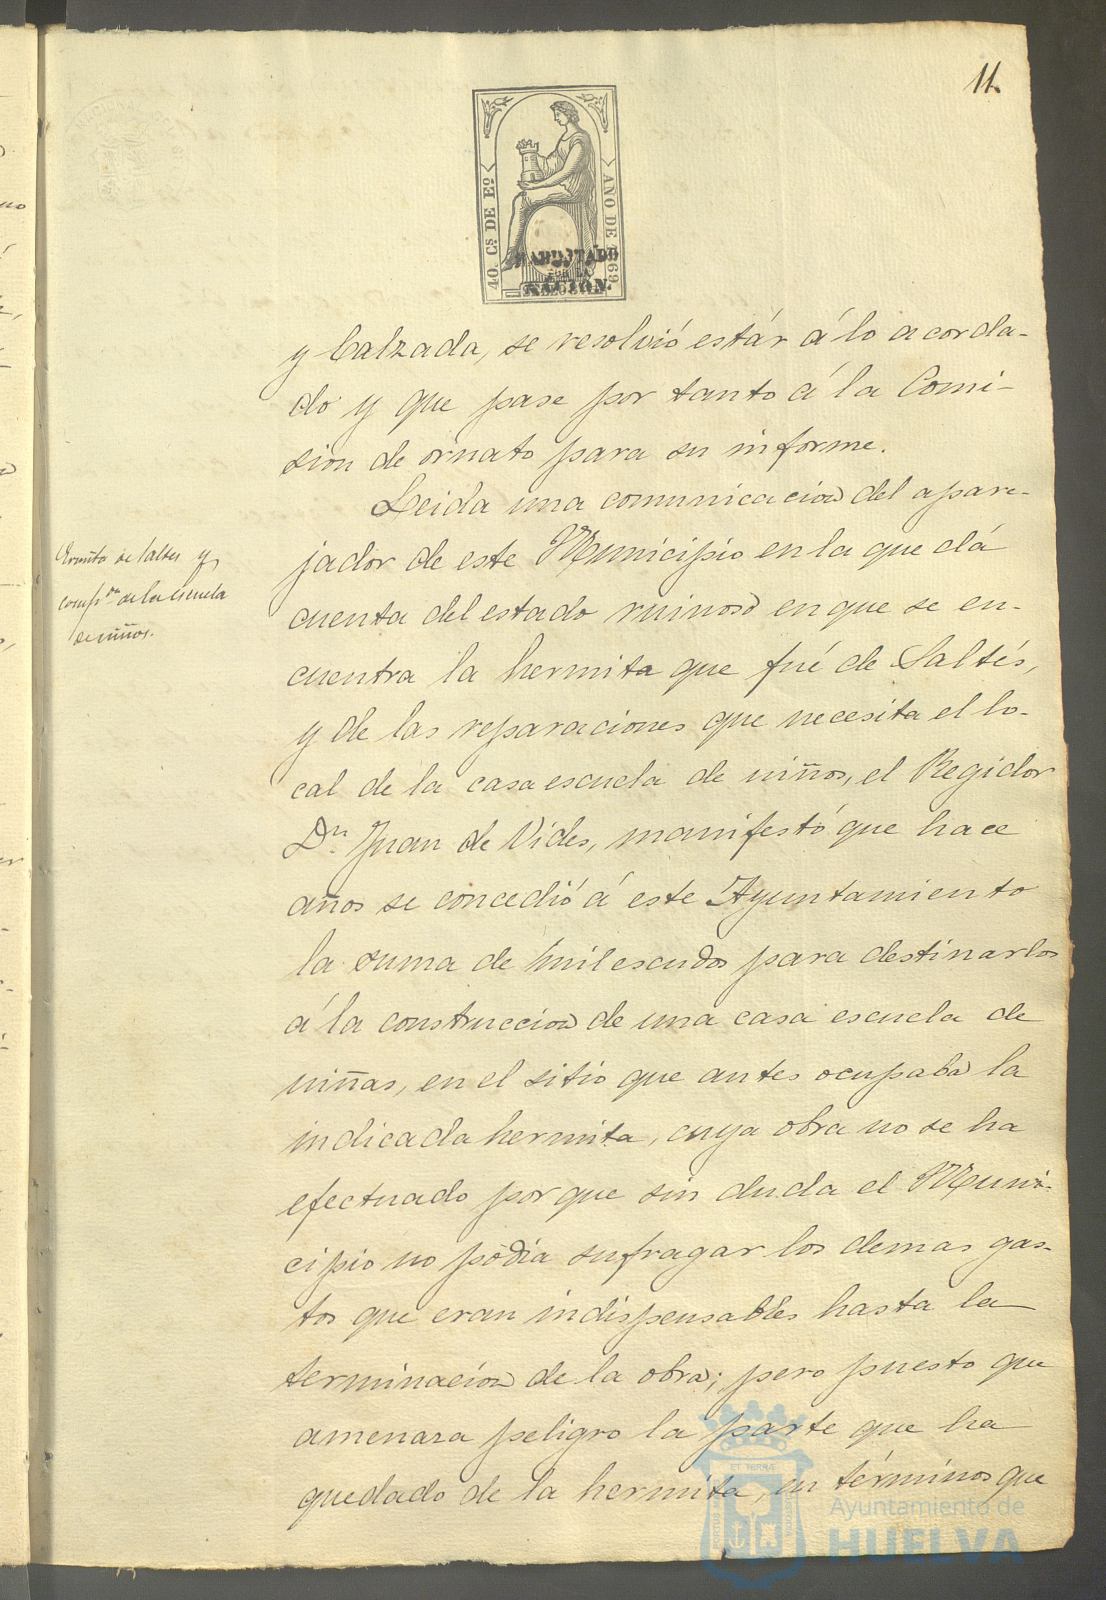 11.
40. Cs. DE Eo.
AÑO DE 1869
HABILITADO
POR LA
NACION.
y Calzada, se resolvió estár á lo acorda-
do y que pase por tanto á la Comi-
sion de ornato para su informe.
Leida una comunicacion del apare-
jador de este Municipio en la que dá
cuenta del estado ruinoso en que se en-
cuentra la hermita que fué de Saltés,
y de las reparaciones que necesita el lo-
cal de la casa escuela de niños, el Regidor
Dn. Juan de Vides, manifestó que hace
años se concedió á este Ayuntamiento
la suma de mil escudos para destinarlos
á la construccion de una casa escuela de
niñas, en el sitio que antes ocupaba la
indicada hermita, cuya obra no se ha
efectuado por que sin duda el Muni-
cipio no podia sufragar los demas gas-
tos que eran indispensables hasta la
terminacion de la obra; pero puesto que
amenaza peligro la parte que ha
quedado de la hermita, en términos que
Ermita de Saltes y
compon de la escuela
de niños.
Ayuntamiento de
HUELVA